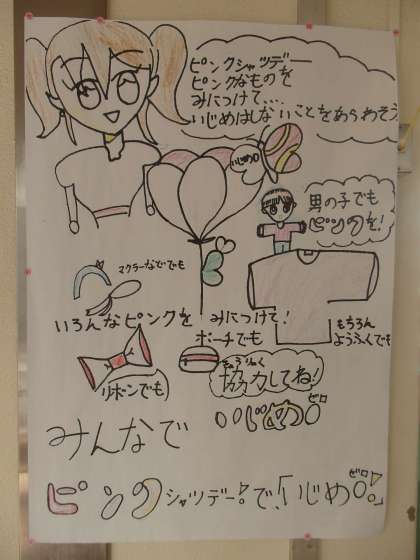 ピンクシャツデー
ピンクなものを
みにつけて....
いじめはしないことをあらわそう
いじめ0
男の子でも
ピンクを!
マクラーなででも
いろんなピンクを みにつけて!
ポーチでも
もちろん
ようふくでも
リボンでも
きょうりょく
協力してね!
いじめ0
ゼロ
みんなで
ピンクシャツデー!で、「いじめ0!」
ゼロ